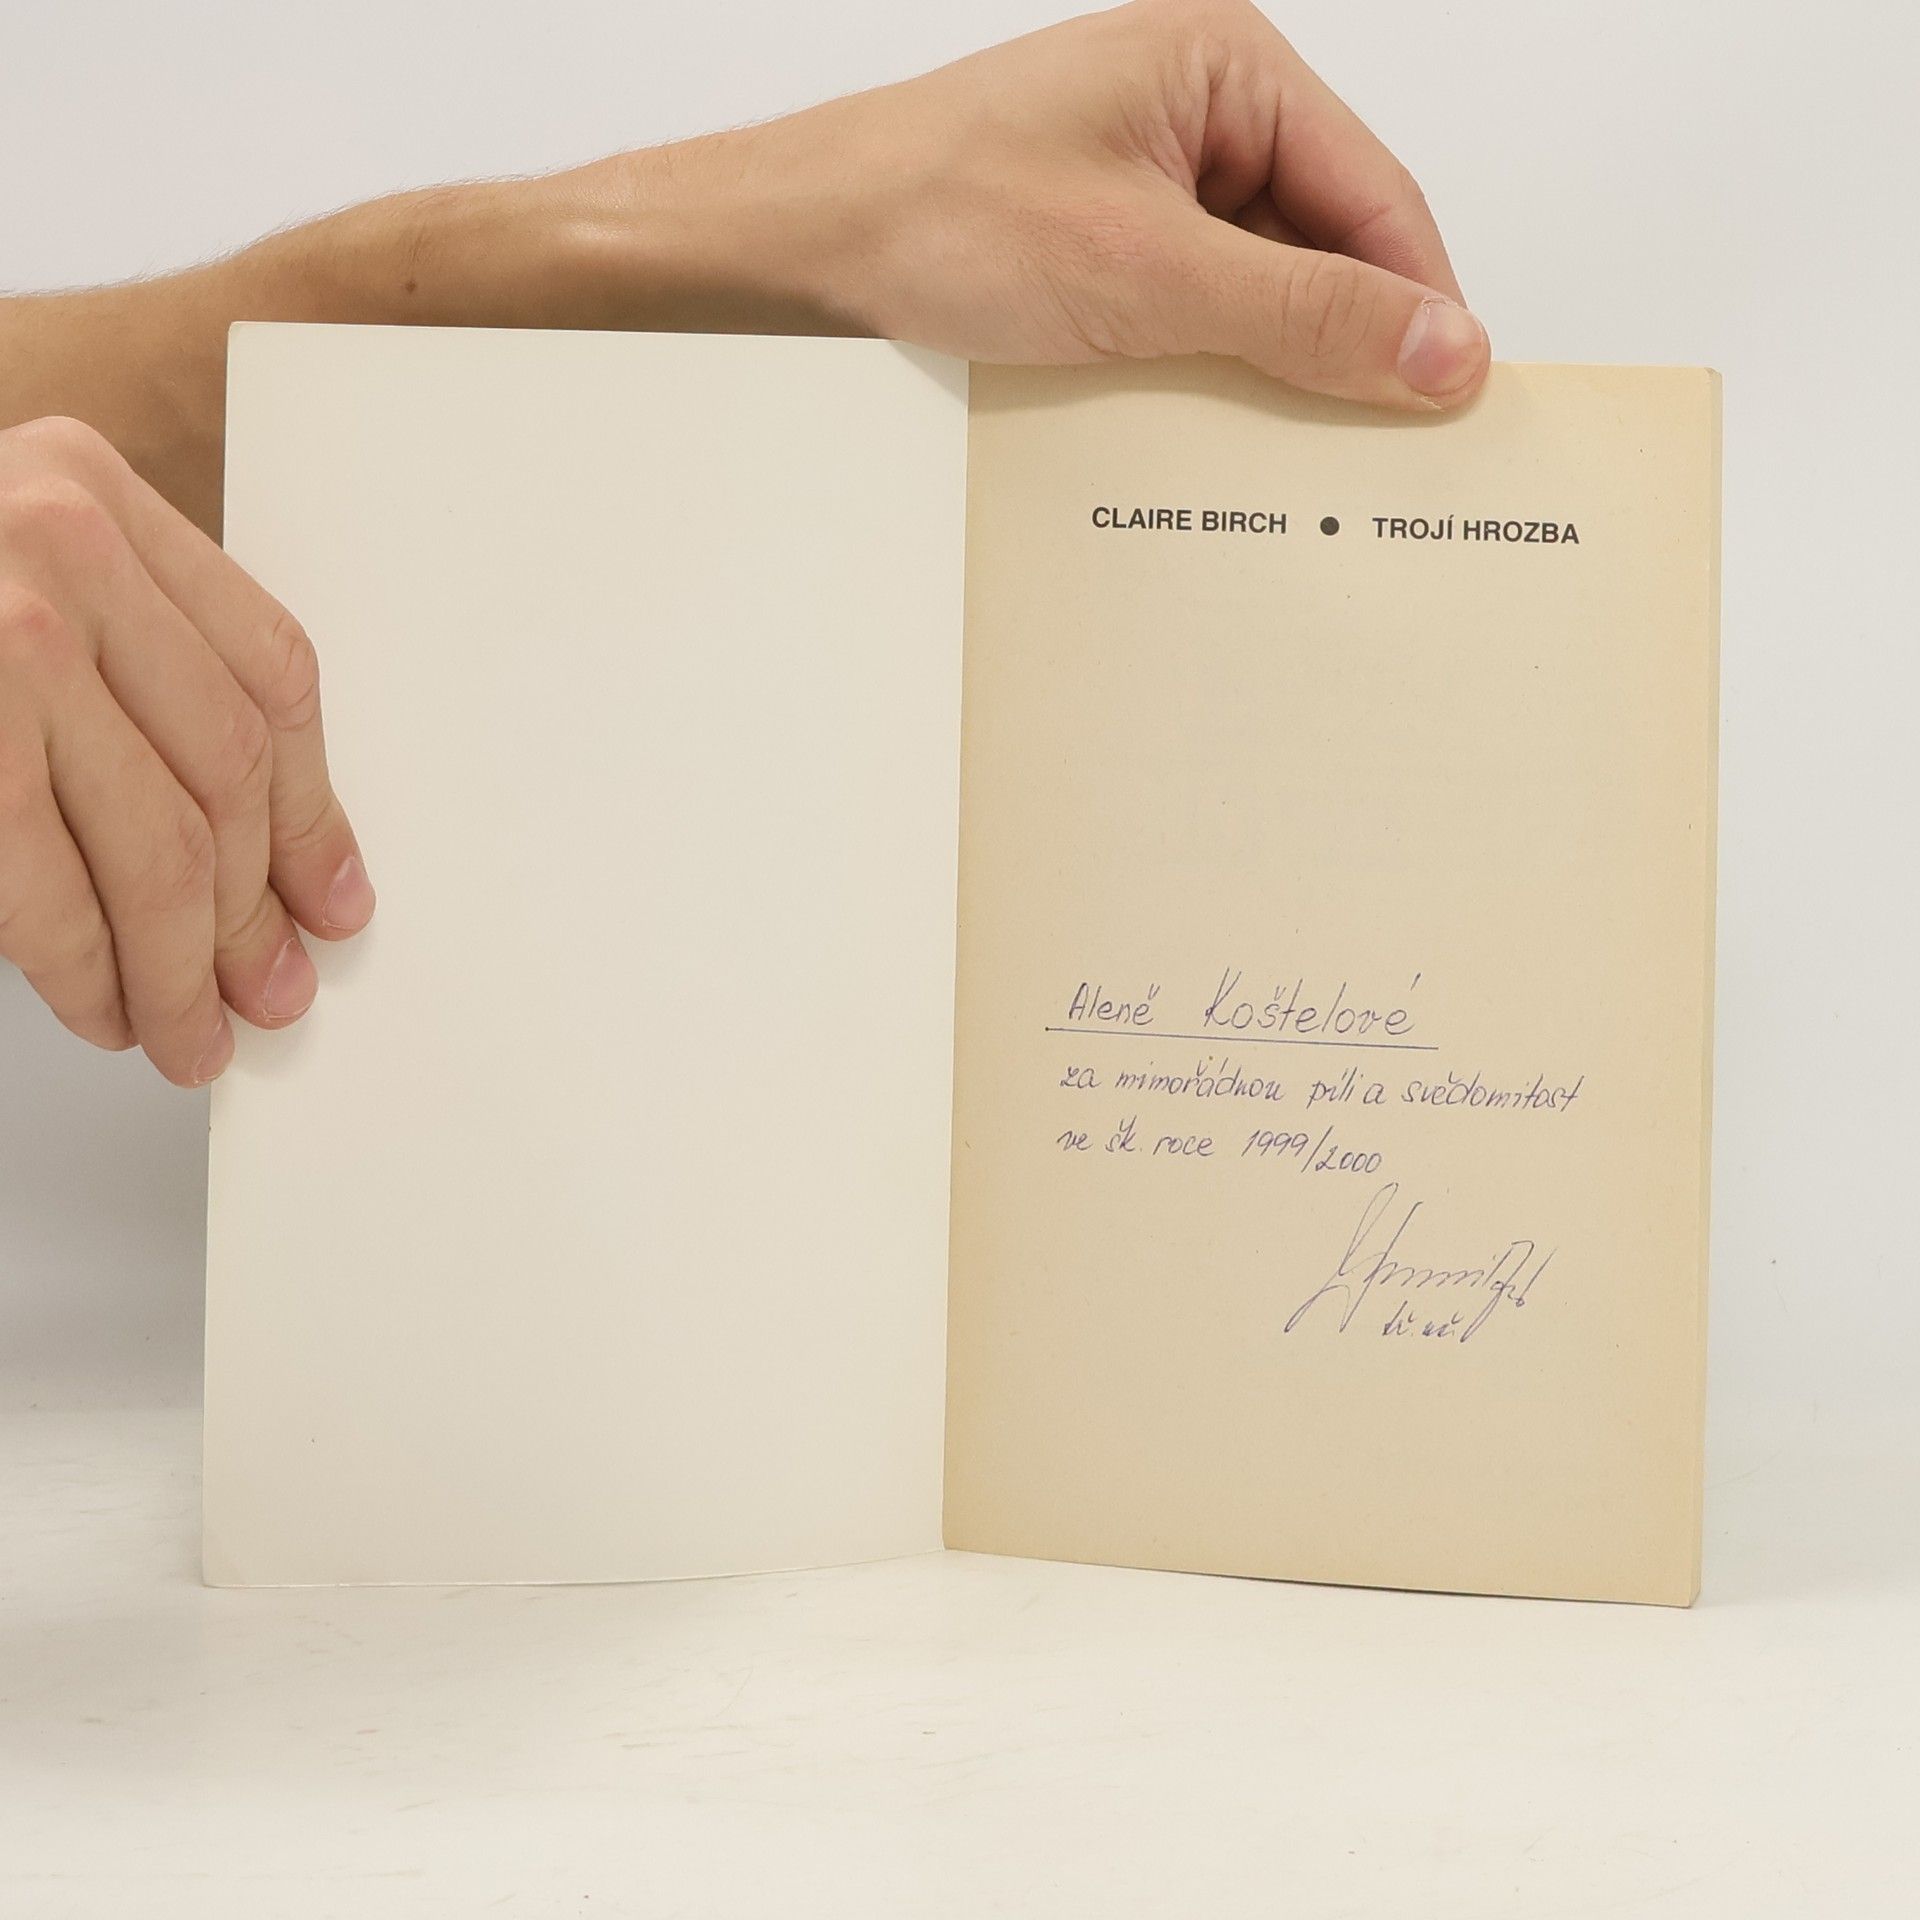 CLAIRE BIRCH ● TROJÍ HROZBA
Aleně Koštelové
za mimořádnou píli a svědomitost
ve šk. roce 1999/2000
tř. uč.